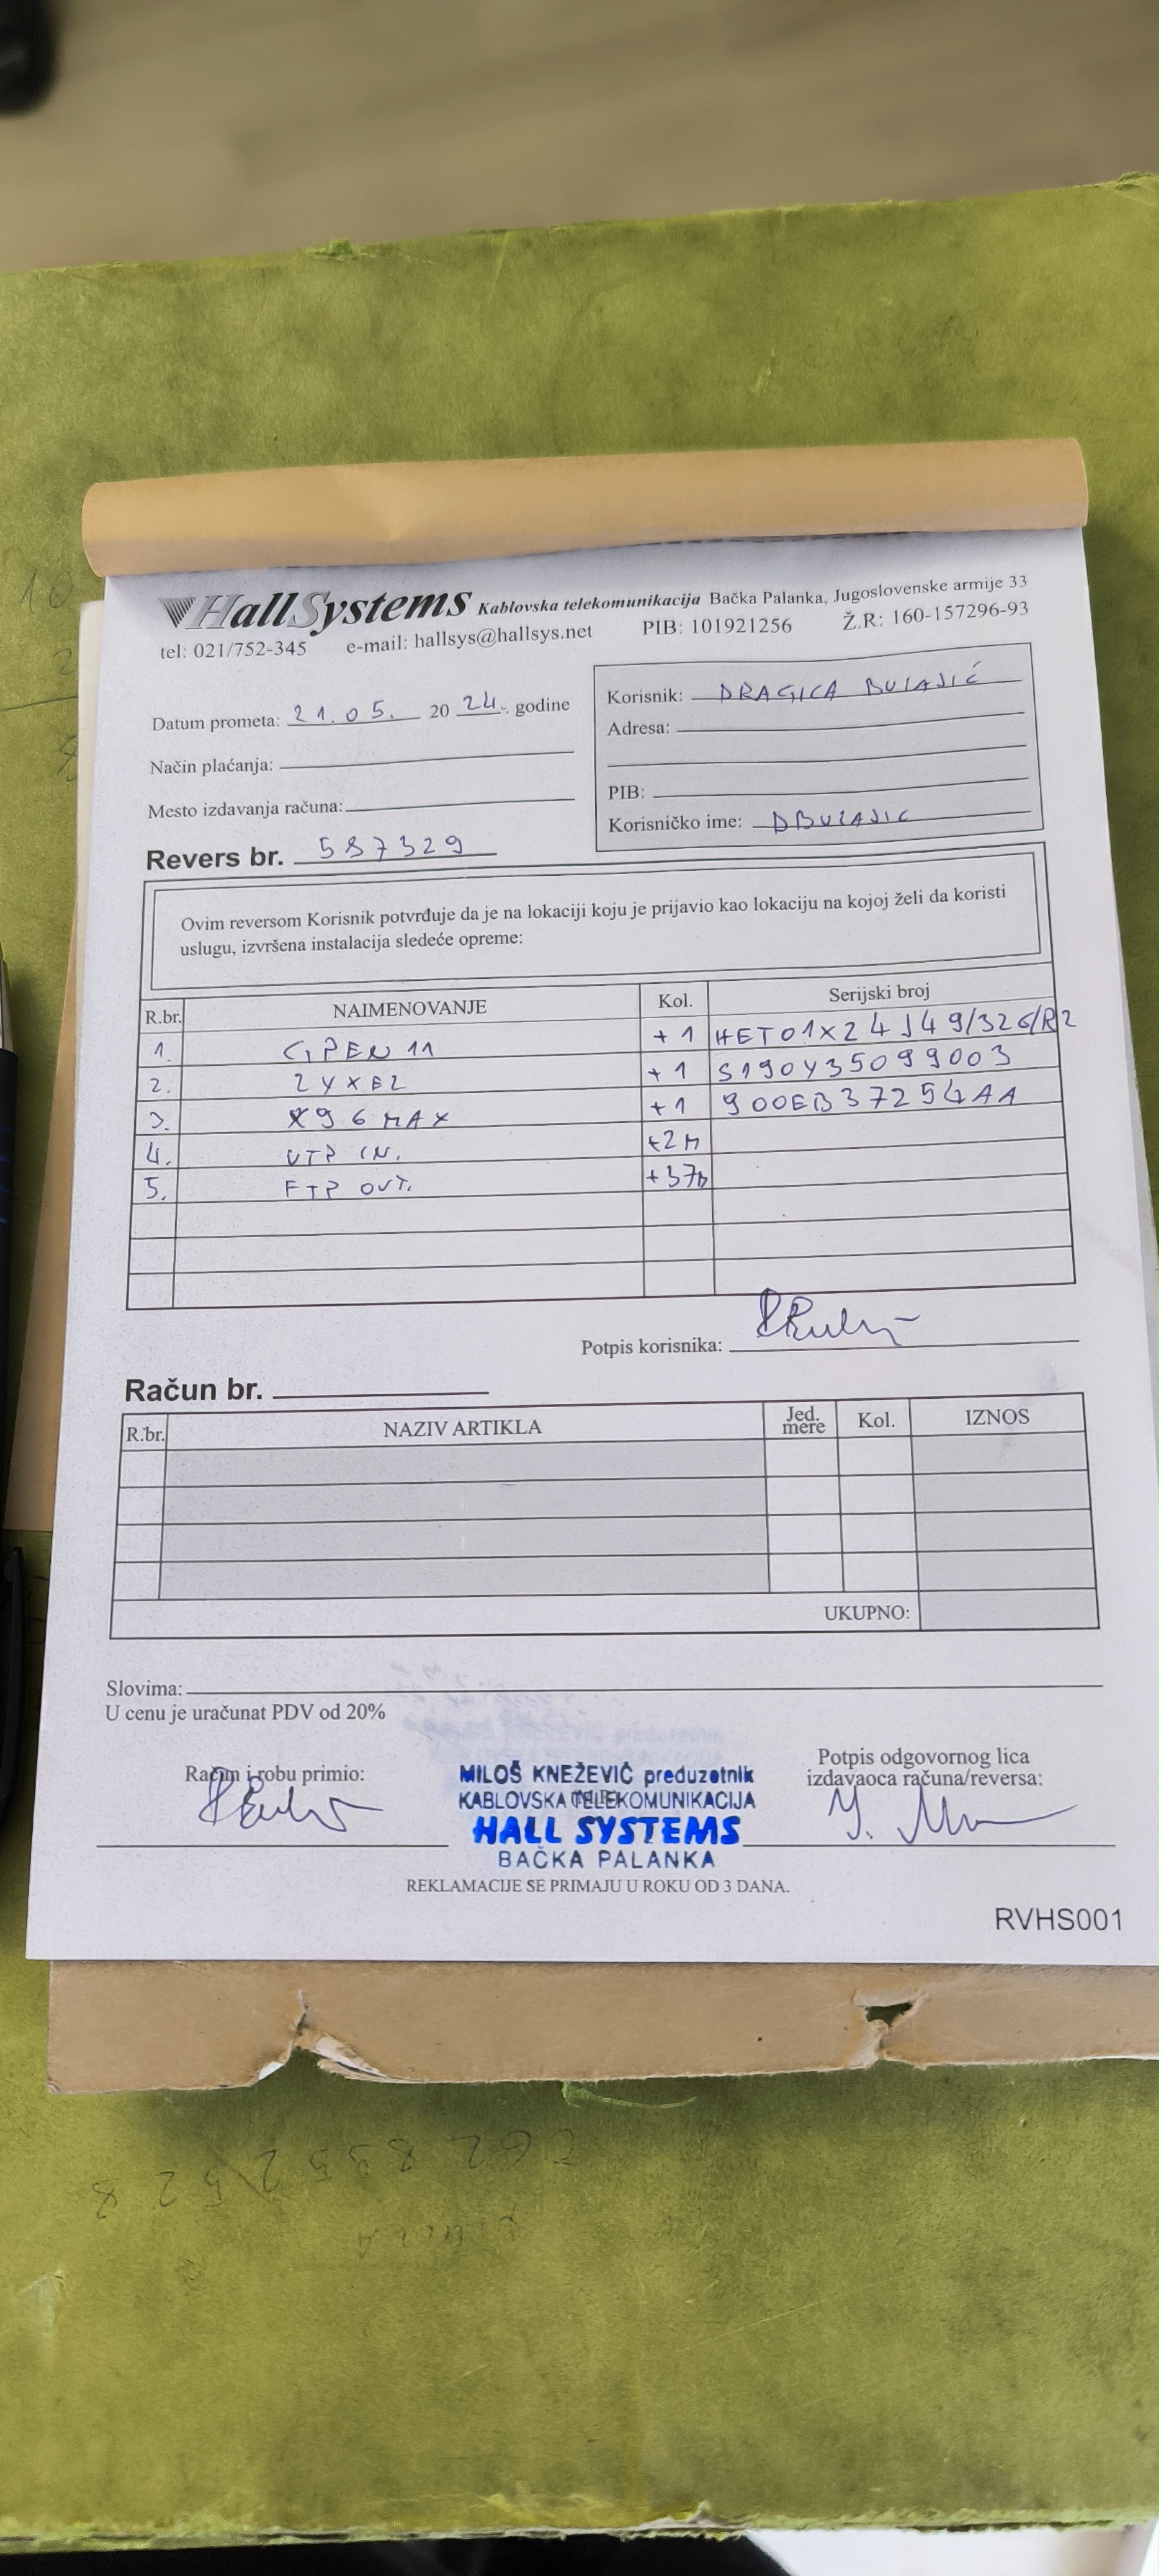 HallSystems Kablovska telekomunikacija Bačka Palanka, Jugoslovenske armije 33
tel: 021/752-345 e-mail: hallsys@hallsys.net PIB: 101921256 Ž.R: 160-157296-93
Datum prometa: 21.05. 20 24. godine
Način plaćanja:
Mesto izdavanja računa:
Revers br. 587329
Korisnik: DRAGICA BULAJIĆ
Adresa:
PIB:
Korisničko ime: DBULAJIC
Ovim reversom Korisnik potvrđuje da je na lokaciji koju je prijavio kao lokaciju na kojoj želi da koristi
uslugu, izvršena instalacija sledeće opreme:
R.br. NAIMENOVANJE Kol. Serijski broj
1. GPEN11 +1 HET01X24J49/326/R2
2. ZYXEL +1 S190Y35099003
3. X96 MAX +1 900EB37254AA
4. UTP IN. +2M
5. FTP OUT. +37M
Potpis korisnika:
Račun br.
R.br. NAZIV ARTIKLA Jed. mere Kol. IZNOS
UKUPNO:
Slovima:
U cenu je uračunat PDV od 20%
Račun i robu primio:
MILOŠ KNEŽEVIĆ preduzetnik
KABLOVSKA TELEKOMUNIKACIJA
HALL SYSTEMS
BAČKA PALANKA
Potpis odgovornog lica
izdavaoca računa/reversa:
REKLAMACIJE SE PRIMAJU U ROKU OD 3 DANA.
RVHS001